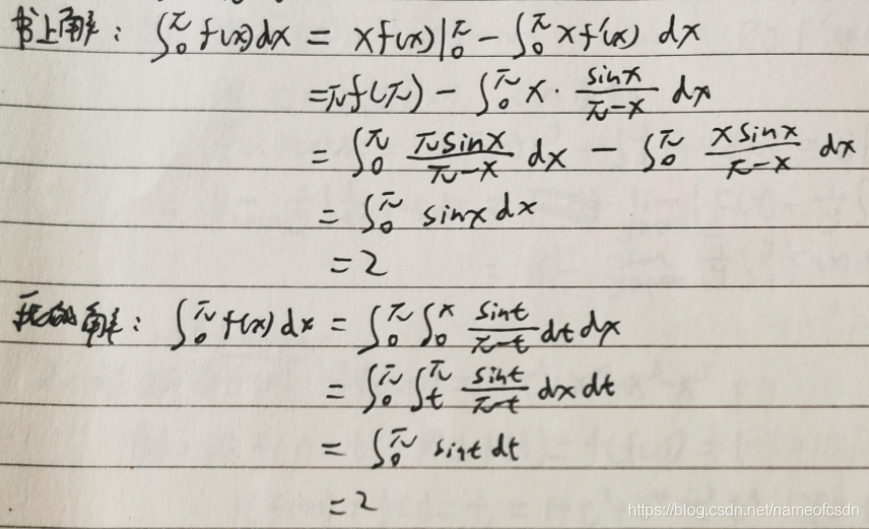 书上解: ∫₀^π f(x)dx = xf(x)|₀^π - ∫₀^π xf'(x) dx
=πf(π) - ∫₀^π x· sinx/(π-x) dx
= ∫₀^π πsinx/(π-x) dx - ∫₀^π xsinx/(π-x) dx
= ∫₀^π sinx dx
=2
我的解: ∫₀^π f(x)dx = ∫₀^π ∫₀^x sint/(π-t) dt dx
= ∫₀^π ∫ₜ^π sint/(π-t) dx dt
= ∫₀^π sint dt
=2
https://blog.csdn.net/nameofcsdn